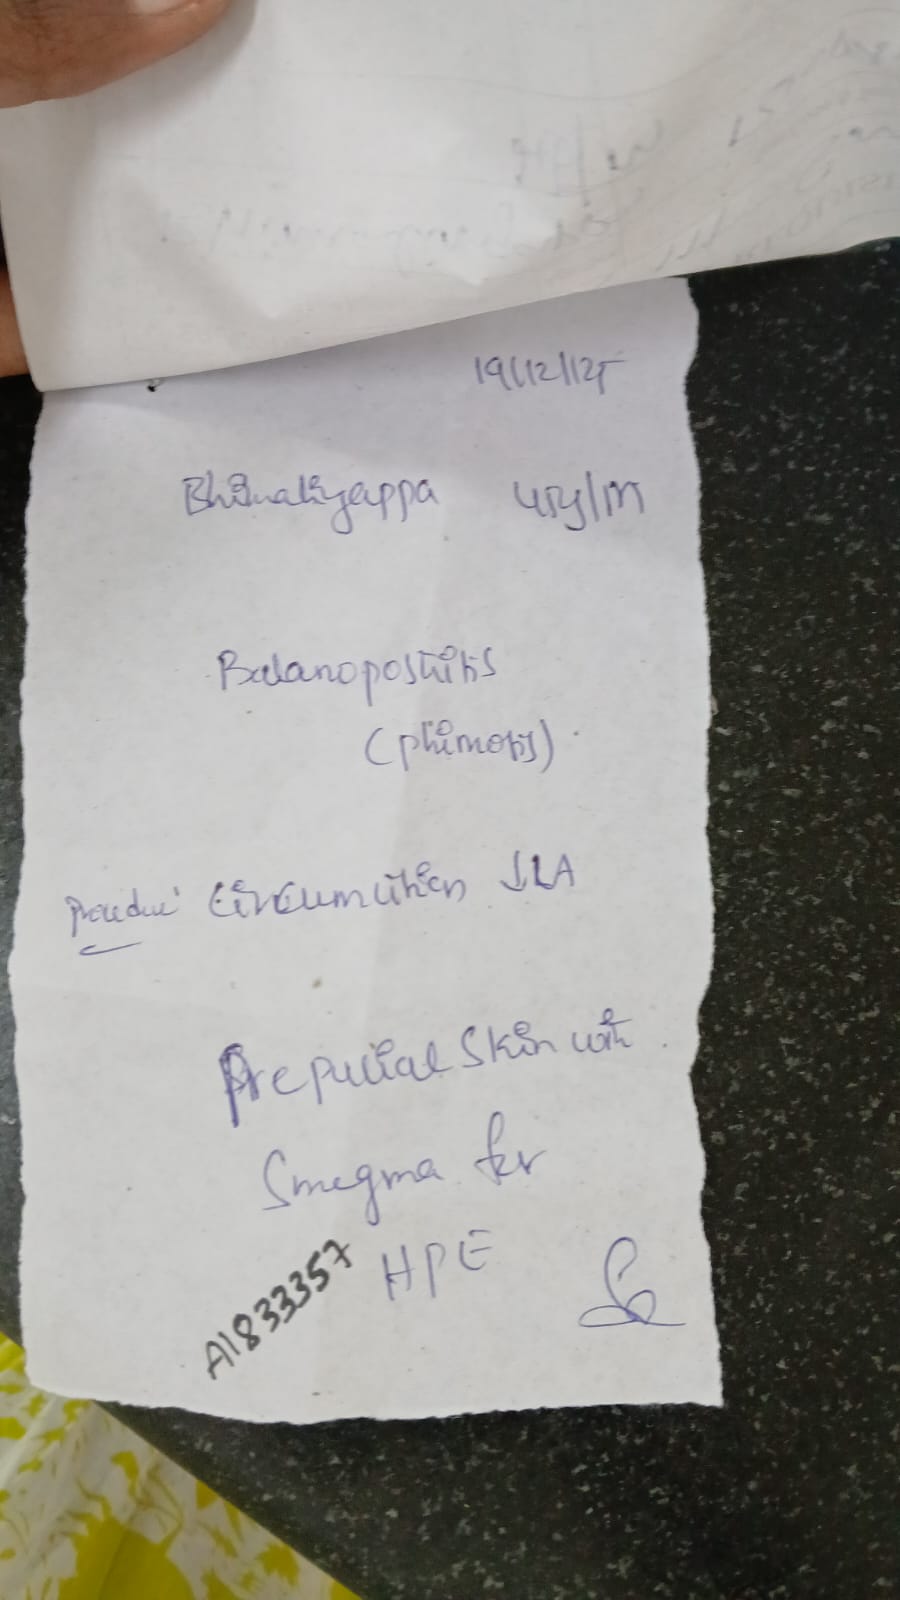 19/12/25
Bhimaliyappa 45y/M
Balanoposthitis
(phimosis)
circumcision
Preputial skin with
Smegma for
HPE
A1833357